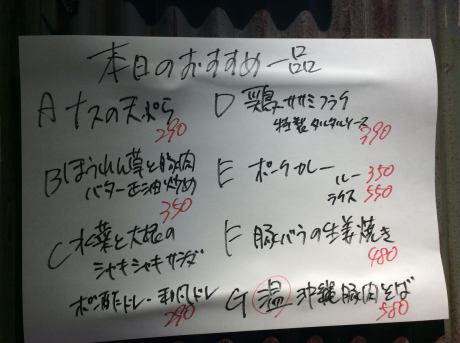 本日のおすすめ一品
A ナスの天ぷら
290
B ほうれん草と豚肉
バター正油炒め
350
C 水菜と大根の
シャキシャキサラダ
ポン酢ドレ 和風ドレ
290
D 鶏ササミフライ
特製タルタルソース
390
E ポークカレー
ルー 350
ライス 550
F 豚バラの生姜焼き
480
G 温 沖縄豚肉そば
580